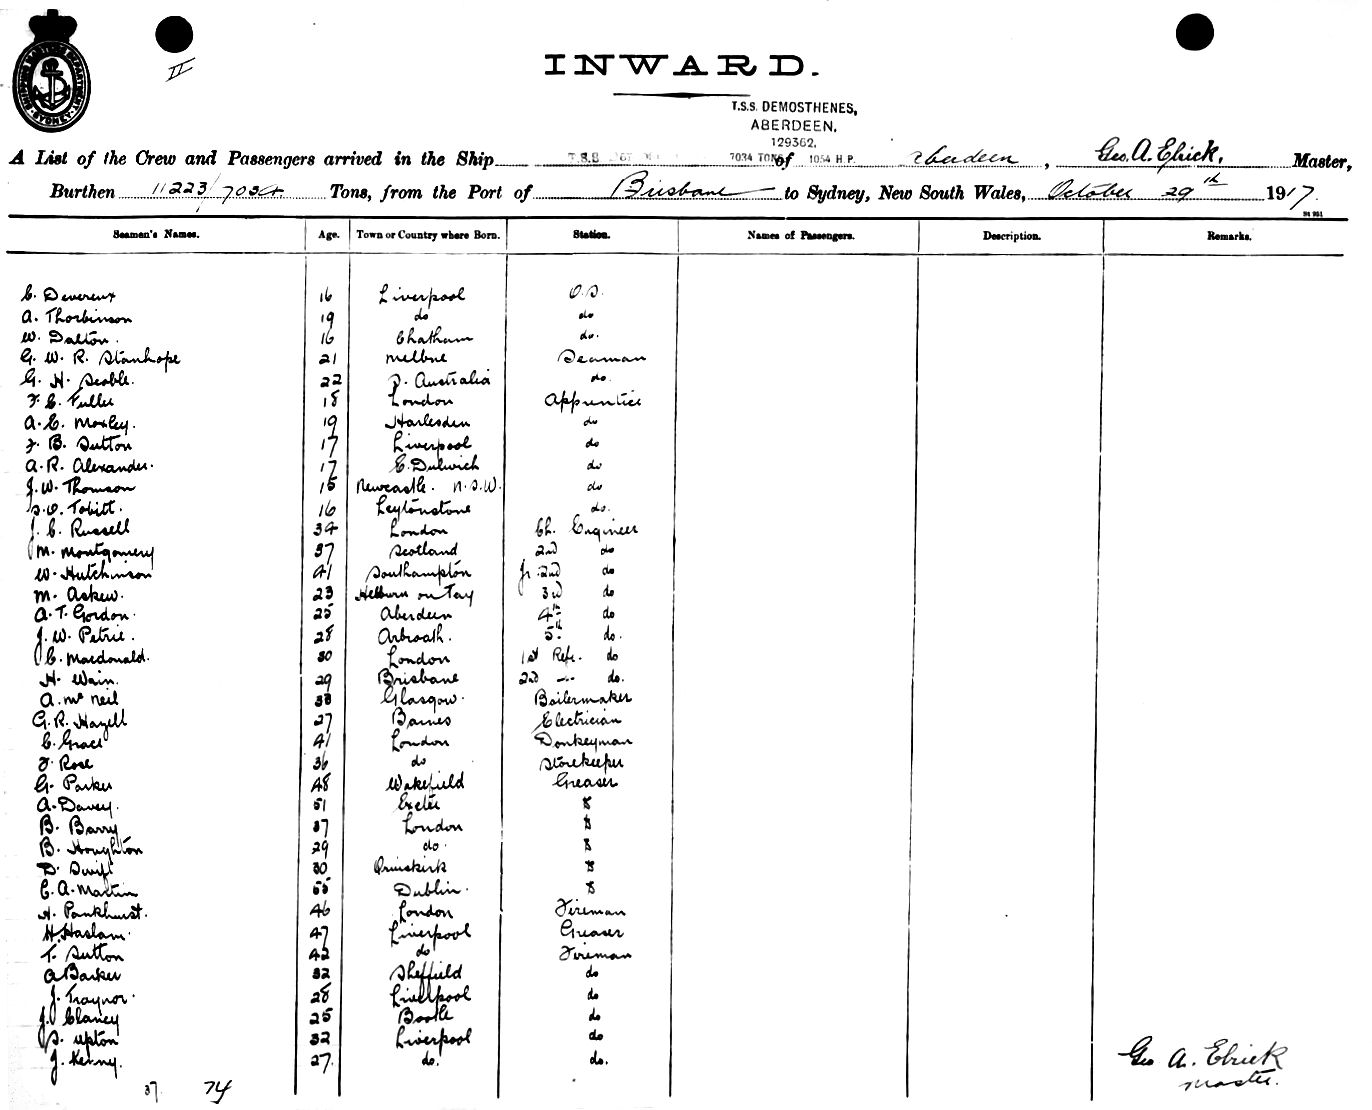 II
INWARD.
T.S.S. DEMOSTHENES,
ABERDEEN.
129362.
7034 TONS 1054 H.P.
A List of the Crew and Passengers arrived in the Ship of Aberdeen, Geo. A. Ebrick, Master,
Burthen 11223/7034 Tons, from the Port of Brisbane to Sydney, New South Wales, October 29th 1917.
Seamen's Names. Age. Town or Country where Born. Station. Names of Passengers. Description. Remarks.
C. Devereux 16 Liverpool O.S.
A. Thorbinson 19 do do
W. Dalton. 16 Chatham do.
G. W. R. Stanhope 21 Melbne Seaman
G. H. Seable. 22 S. Australia do.
F. C. Fuller 18 London Apprentice
A. E. Moxley. 19 Harlesden do
F. B. Sutton 17 Liverpool do
A. R. Alexander. 17 E. Dulwich do
J. W. Thomson 15 Newcastle. N.S.W. do
S. O. Tabitt. 16 Leytonstone do.
J. C. Russell 34 London Ch. Engineer
M. Montgomery 37 Scotland 2nd do
W. Hutchinson 41 Southampton Jr. 2nd do
M. Askew. 23 Hebburn on Tay 3rd do
A. T. Gordon. 25 Aberdeen 4th do
J. W. Petrie. 28 Arbroath. 5th do.
C. Macdonald. 30 London 1st Refr. do
H. Wain. 29 Brisbane 2nd — do.
A. McNeil 38 Glasgow. Boilermaker
G. R. Hazell 27 Barnes Electrician
C. Grace 41 London Donkeyman
F. Rose 36 do Storekeeper
G. Parker 48 Wakefield Greaser
A. Davey. 51 Exeter
B. Barry 37 London
B. Houghton 29 do.
D. Swift 30 Ormskirk
C. A. Martin 55 Dublin.
H. Pankhurst. 46 London Fireman
H. Haslam. 47 Liverpool Greaser
T. Sutton 42 do Fireman
A Barker 32 Sheffield do
J. Traynor. 28 Liverpool do
J. Clancy 25 Bootle do
S. Upton 32 Liverpool do
J. Kenny. 27. do. do.
Geo A. Ebrick
Master.
37. 74